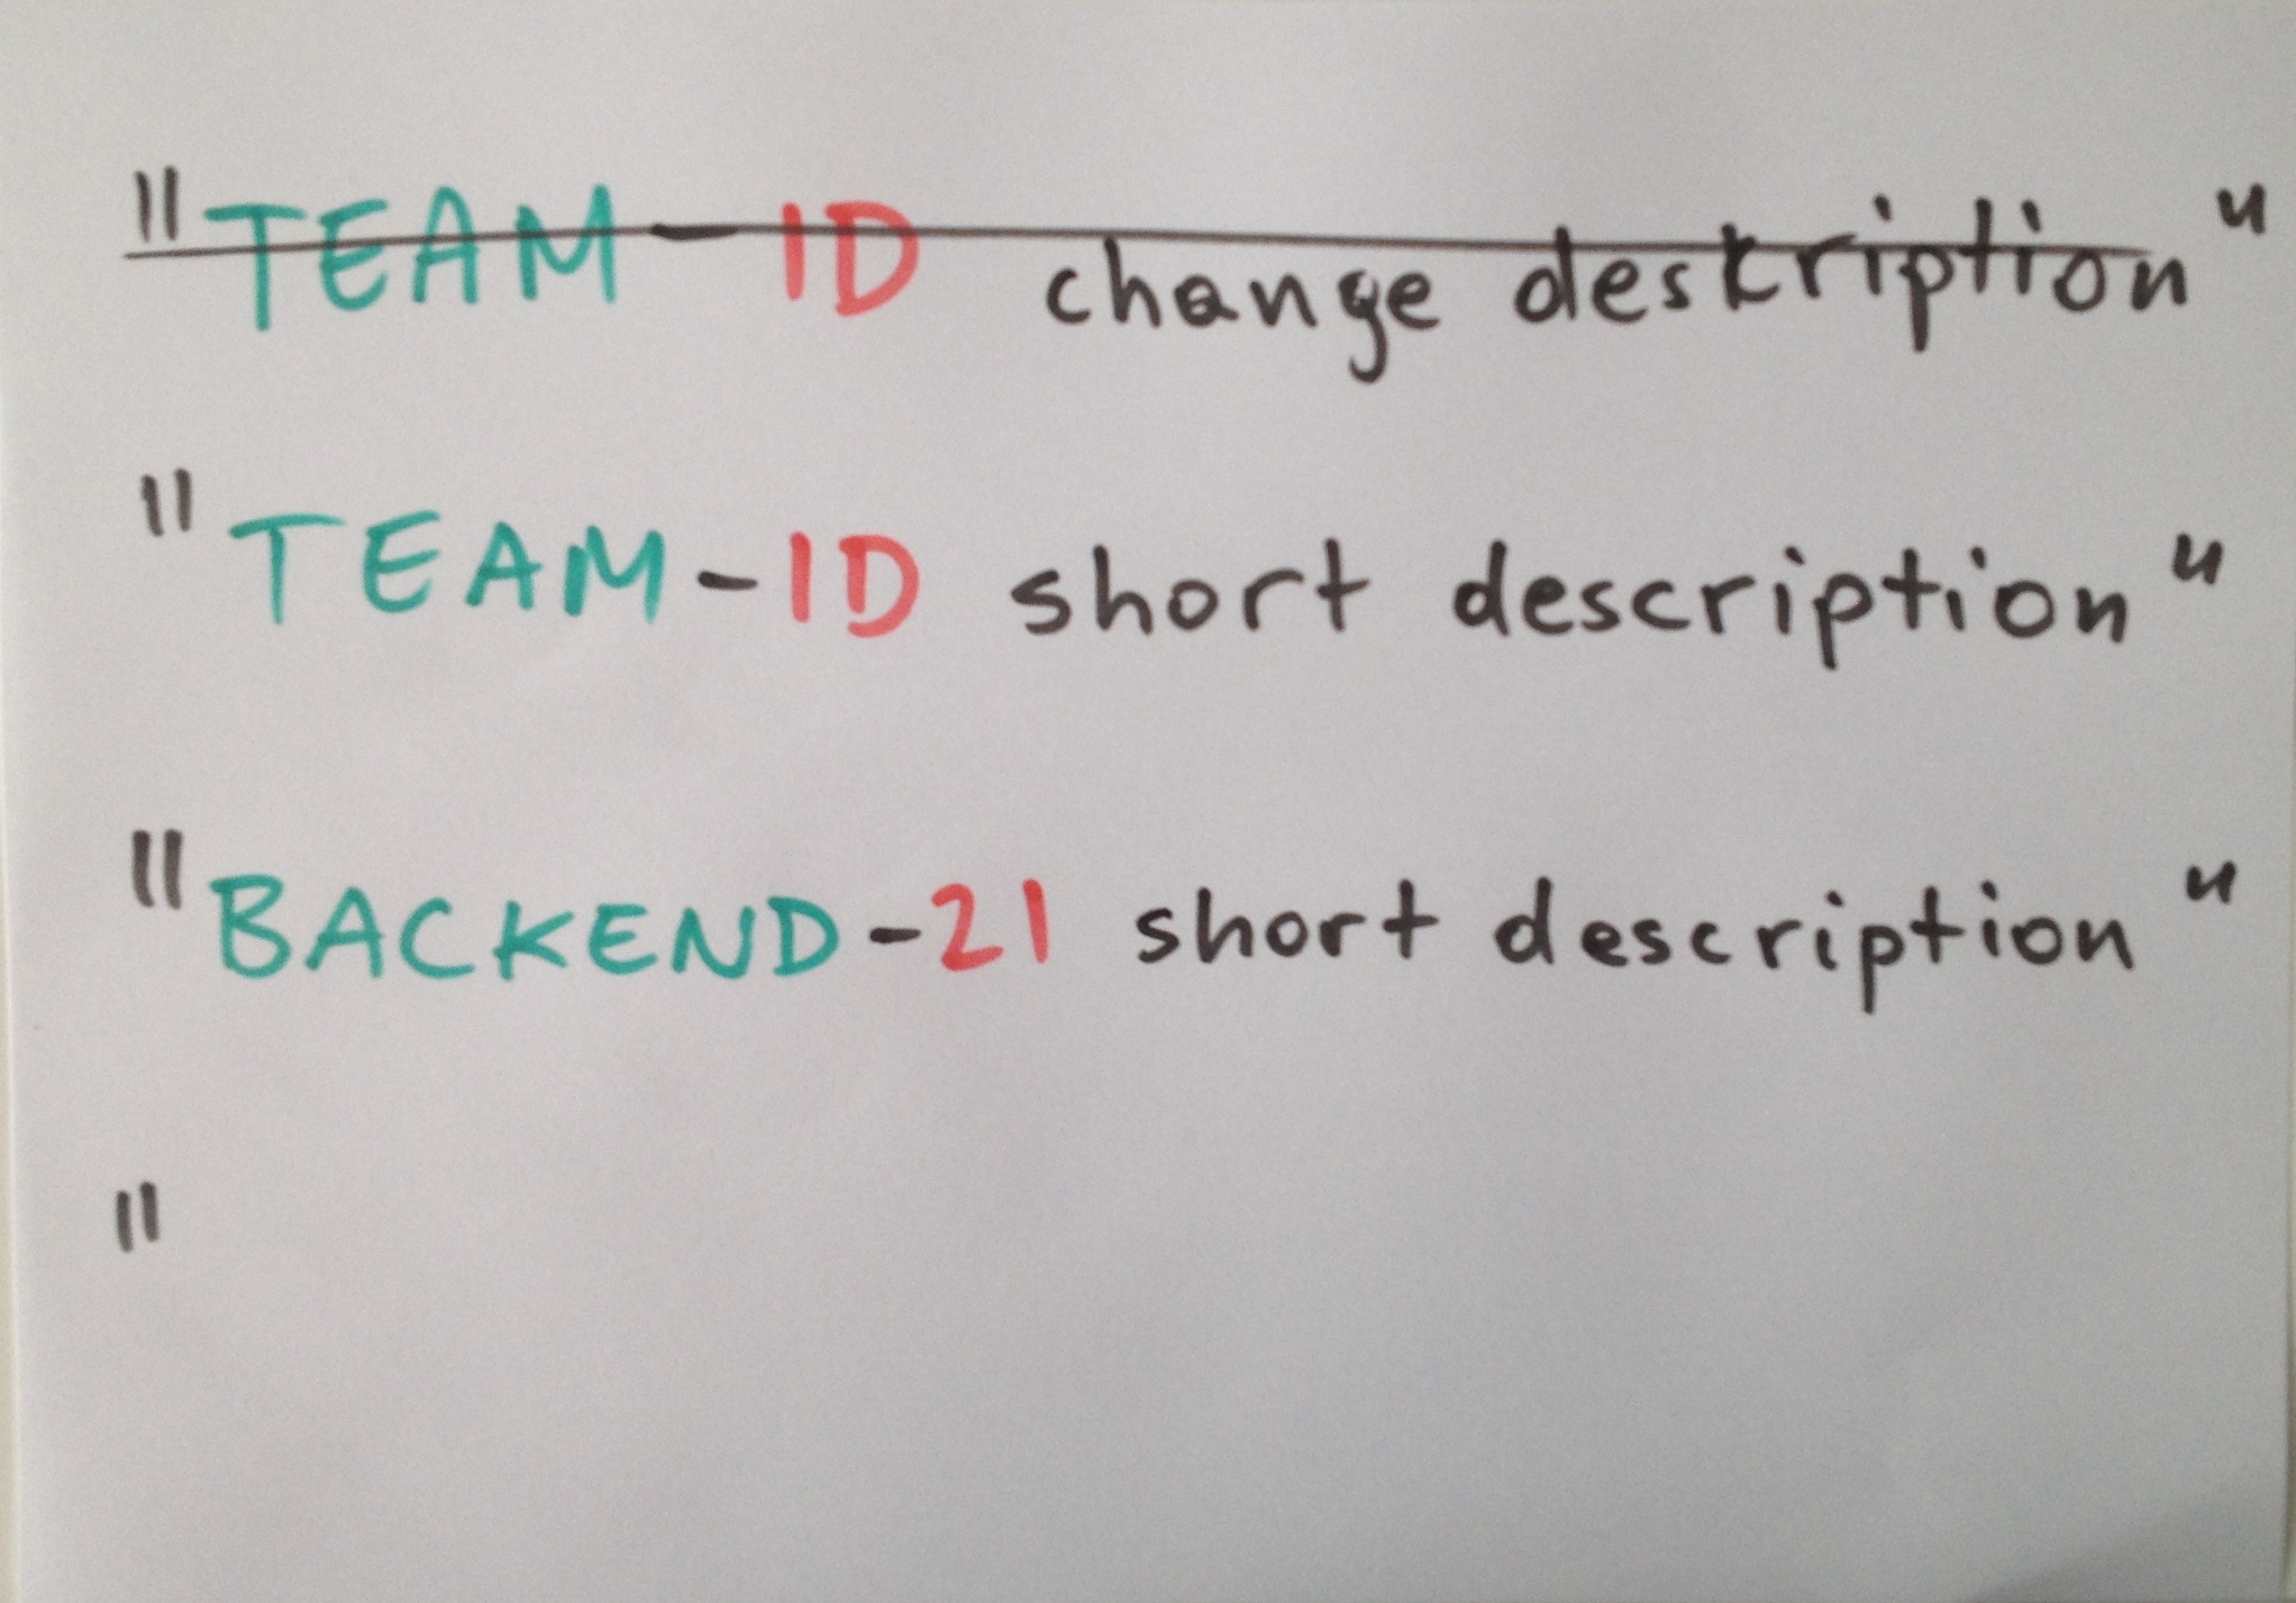 "TEAM-ID change deskription"
"TEAM-ID short description"
"BACKEND-21 short description"
"